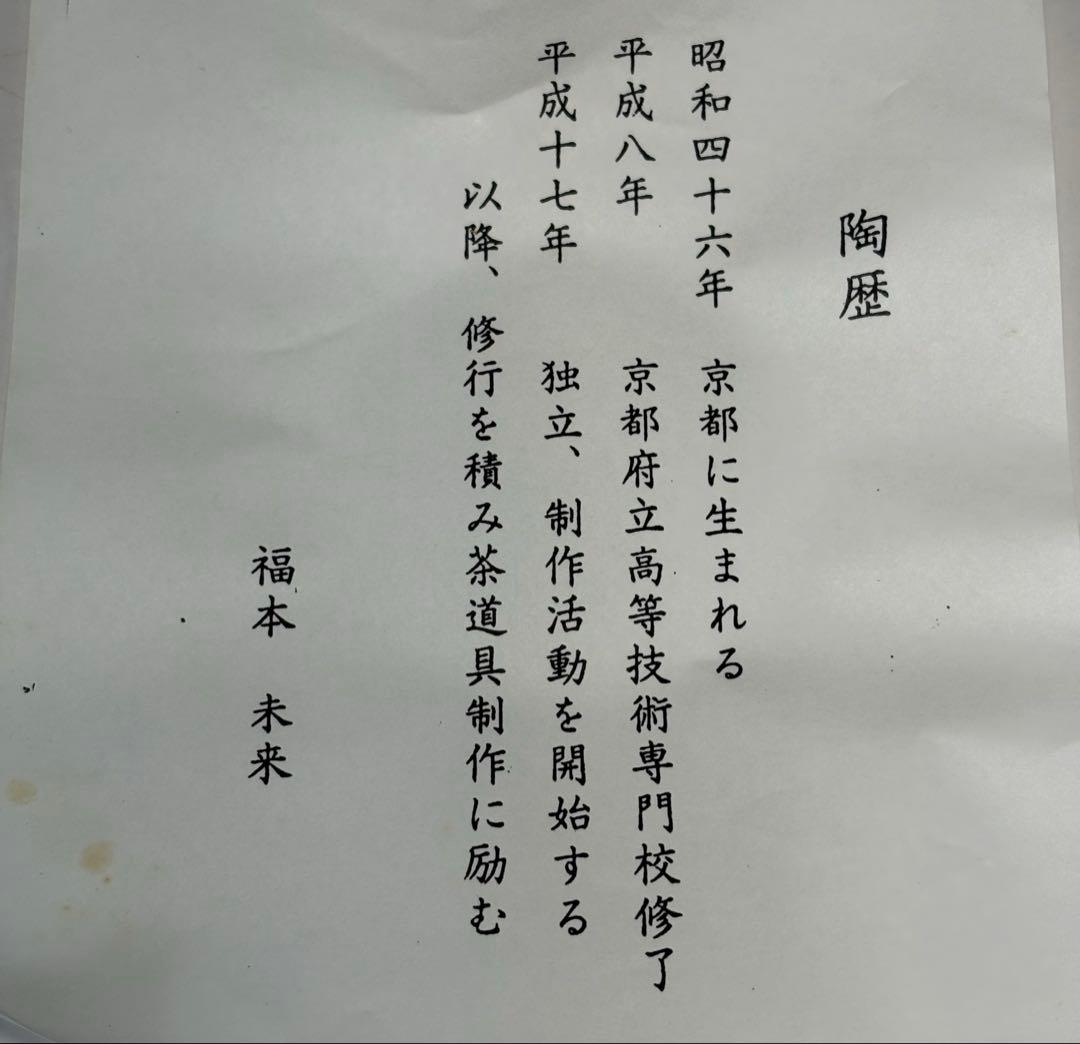 陶歴
昭和四十六年　京都に生まれる
平成八年　京都府立高等技術専門校修了
平成十七年　独立、制作活動を開始する
以降、修行を積み茶道具制作に励む
福本　未来